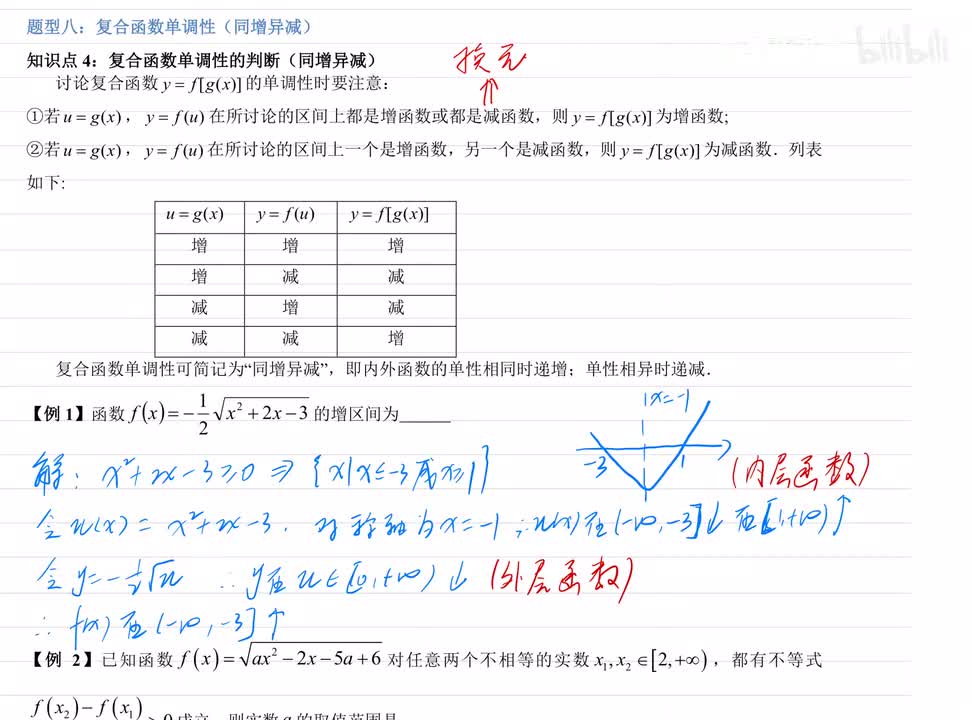 题型八：复合函数单调性（同增异减）
bilibili
知识点 4：复合函数单调性的判断（同增异减）
换元
讨论复合函数 y = f[g(x)] 的单调性时要注意：
①若 u = g(x)，y = f(u) 在所讨论的区间上都是增函数或都是减函数，则 y = f[g(x)] 为增函数;
②若 u = g(x)，y = f(u) 在所讨论的区间上一个是增函数，另一个是减函数，则 y = f[g(x)] 为减函数．列表
如下:
u = g(x) y = f(u) y = f[g(x)]
增 增 增
增 减 减
减 增 减
减 减 增
复合函数单调性可简记为“同增异减”，即内外函数的单性相同时递增；单性相异时递减．
【例 1】函数 f(x) = -1/2 √(x² + 2x - 3) 的增区间为______
x=-1
-3 1
解：x²+2x-3≥0 ⇒ {x|x≤-3或x≥1}
(内层函数)
令u(x) = x²+2x-3. 对称轴为x=-1 ∴u(x)在(-∞,-3]↓ 在[1,+∞)↑
令y=-1/2√u ∴ y在u∈[0,+∞)↓ (外层函数)
∴ f(x)在(-∞,-3]↑
【例 2】已知函数 f(x) = √(ax² - 2x - 5a + 6) 对任意两个不相等的实数 x₁, x₂ ∈ [2, +∞)，都有不等式
f(x₂) - f(x₁) > 0 成立，则实数 a 的取值范围是